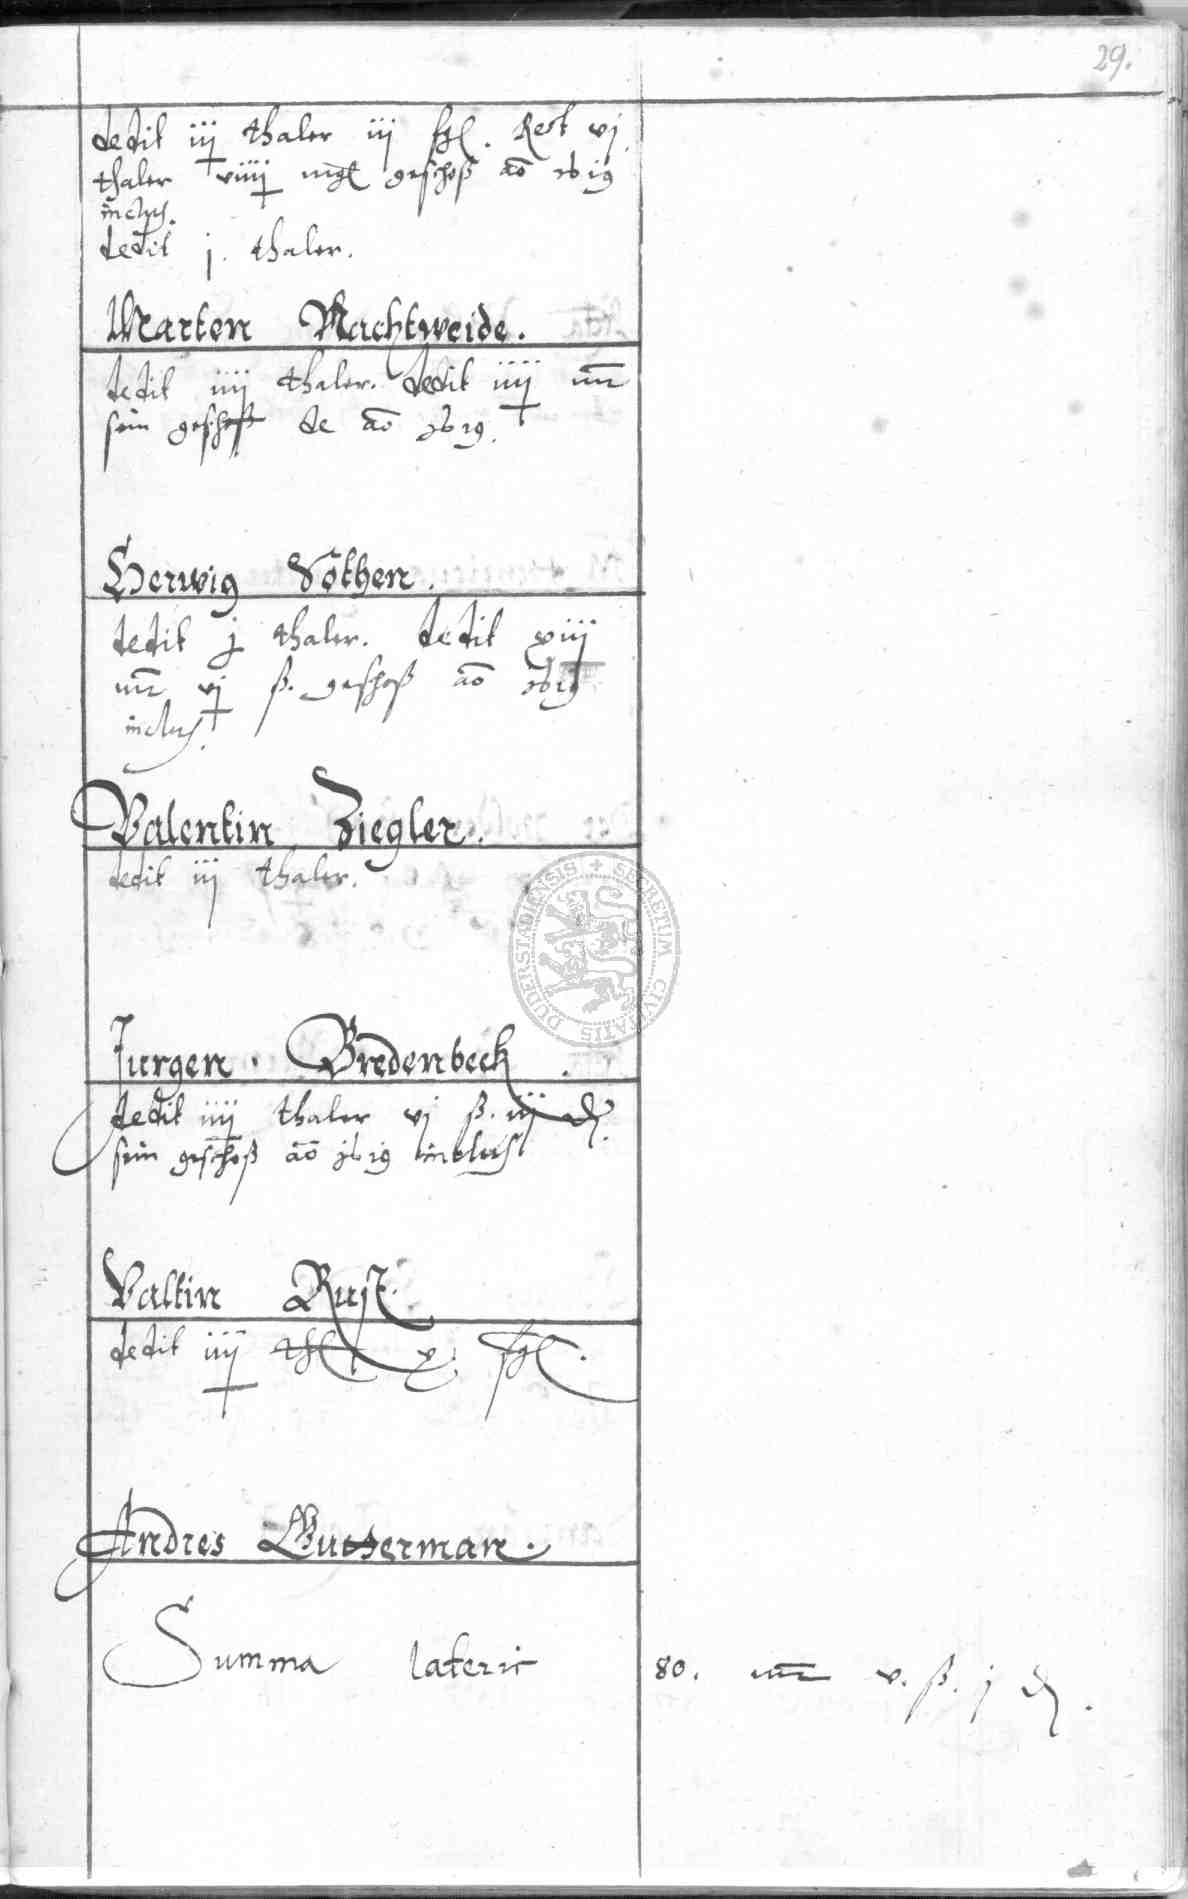 29.
dedit iij thaler iij ßgl. Rest vj
thaler viiij mgl geschoß ao 1619
inclus.
dedit j. thaler.
Marten Nachtweide.
dedit iiij thaler. dedit iiij mr
sein geschoß de ao 1619.
Herwig Sothen.
dedit j thaler. dedit xiij
mr vj ß. geschoß ao 1619
inclus.
Valentin Ziegler.
dedit iij thaler.
SECRETUM CIVITATIS DUDERSTADIENSIS
Jurgen Bredenbeck.
dedit iiij thaler vj ß. iij d.
sein geschoß ao 1619 inclus.
Valtin Rust.
dedit iiij thl v. ßgl.
Andres Gutterman.
Summa lateris 80. mr v. ß. j d.